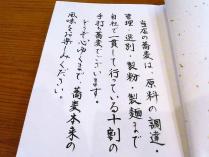 当店の蕎麦は、原料の調達・
管理・選別・製粉・製麺まで
自社で一貫して行っている十割の
手打ち蕎麦でございます。
どうぞ心ゆくまで、蕎麦本来の
風味をお楽しみください。